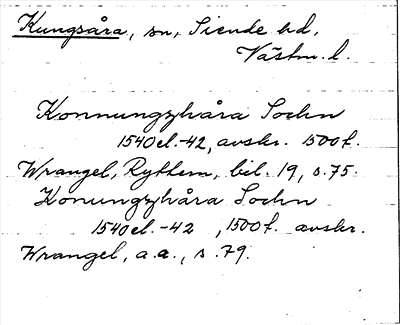 Kungsåra, sn, Siende hd,
Västm. l.
Konnungzhåra Sochn
1540 el. -42, avskr. 1500 t.
Wrangel, Rythern, bil. 19, s. 75.
Konungzhåra Sochn
1540 el. -42 , 1500 t. avskr.
Wrangel, a.a., s. 79.